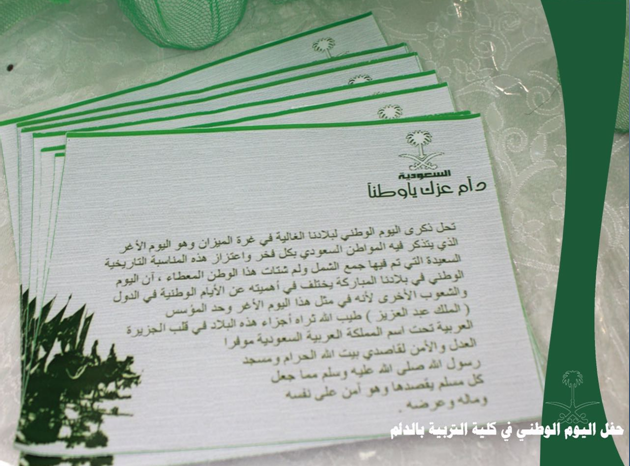 السعودية
دام عزك ياوطننا
تحل ذكرى اليوم الوطني لبلادنا الغالية في غرة الميزان وهو اليوم الأغر
الذي يتذكر فيه المواطن السعودي بكل فخر واعتزاز هذه المناسبة التاريخية
السعيدة التي تم فيها جمع الشمل ولم شتات هذا الوطن المعطاء ، أن اليوم
الوطني في بلادنا المباركة يختلف في أهميته عن الأيام الوطنية في الدول
والشعوب الأخرى لأنه في مثل هذا اليوم الأغر وحد المؤسس
( الملك عبد العزيز ) طيب الله ثراه أجزاء هذه البلاد في قلب الجزيرة
العربية تحت اسم المملكة العربية السعودية موفرا
العدل والأمن لقاصدي بيت الله الحرام ومسجد
رسول الله صلى الله عليه وسلم مما جعل
كل مسلم يقصدها وهو آمن على نفسه
وماله وعرضه .
حفل اليوم الوطني في كلية التربية بالدلم